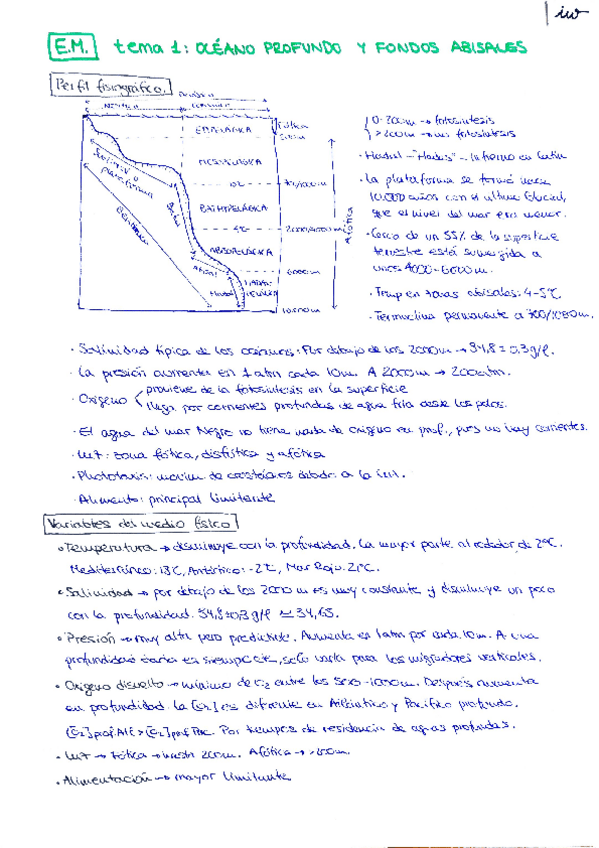 iw
E.M. tema 1: OCÉANO PROFUNDO Y FONDOS ABISALES
Perfil fisiográfico.
EPIPELÁGICA
Fótica
200m
MESOPELÁGICA
10º
700/1000m
BATIPELÁGICA
4º
2000/4000m
Afótica
ABISOPELÁGICA
6000m
Abisal
Hadal
10.000m
Bentónica
0-200m → fotosíntesis
>200m → no fotosíntesis
· Hadal - "Hades" - Infierno en latín
· La plataforma se formó hace
10.000 años con el último Glacial,
que el nivel del mar era menor.
· Cerca de un 55% de la superficie
terrestre está sumergida a
unos 4000-6000m.
· Temp en zonas abisales: 4-5ºC
· Termoclina permanente a 700/1000m.
· Salinidad típica de los océanos: Por debajo de los 2000m → 34,8 ± 0,3 g/l.
· La presión aumenta en 1 atm cada 10m. A 2000m → 200 atm.
· Oxígeno proviene de la fotosíntesis en la superficie
llega por corrientes profundas de agua fría desde los polos.
· El agua del mar Negro no tiene nada de oxígeno en prof., pues no hay corrientes.
· Luz: zona fótica, disfótica y afótica
· Phototaxis: movim de crustáceos debido a la luz.
· Alimento: principal limitante
Variables del medio físico
• Temperatura → disminuye con la profundidad. La mayor parte alrededor de 2ºC.
Mediterráneo: 13ºC, Antártico: -2ºC, Mar Rojo: 21ºC.
• Salinidad → por debajo de los 2000 m es muy constante y disminuye un poco
con la profundidad. 34,8 ± 0,3 g/l ≃ 34,65.
• Presión → muy alta pero predictible. Aumenta en 1 atm por cada 10m. A una
profundidad dada es siempre cte, solo varía para los migradores verticales.
• Oxígeno disuelto → mínimo de O₂ entre los 500-1000m. Después aumenta
en profundidad. La [O₂] es difrente en Atlántico y Pacífico profundo.
[O₂] prof. Atl > [O₂] prof Pac. Por tiempos de residencia de aguas profundas.
• Luz → Fótica → hasta 200m. Afótica → >200m.
• Alimentación → mayor limitante